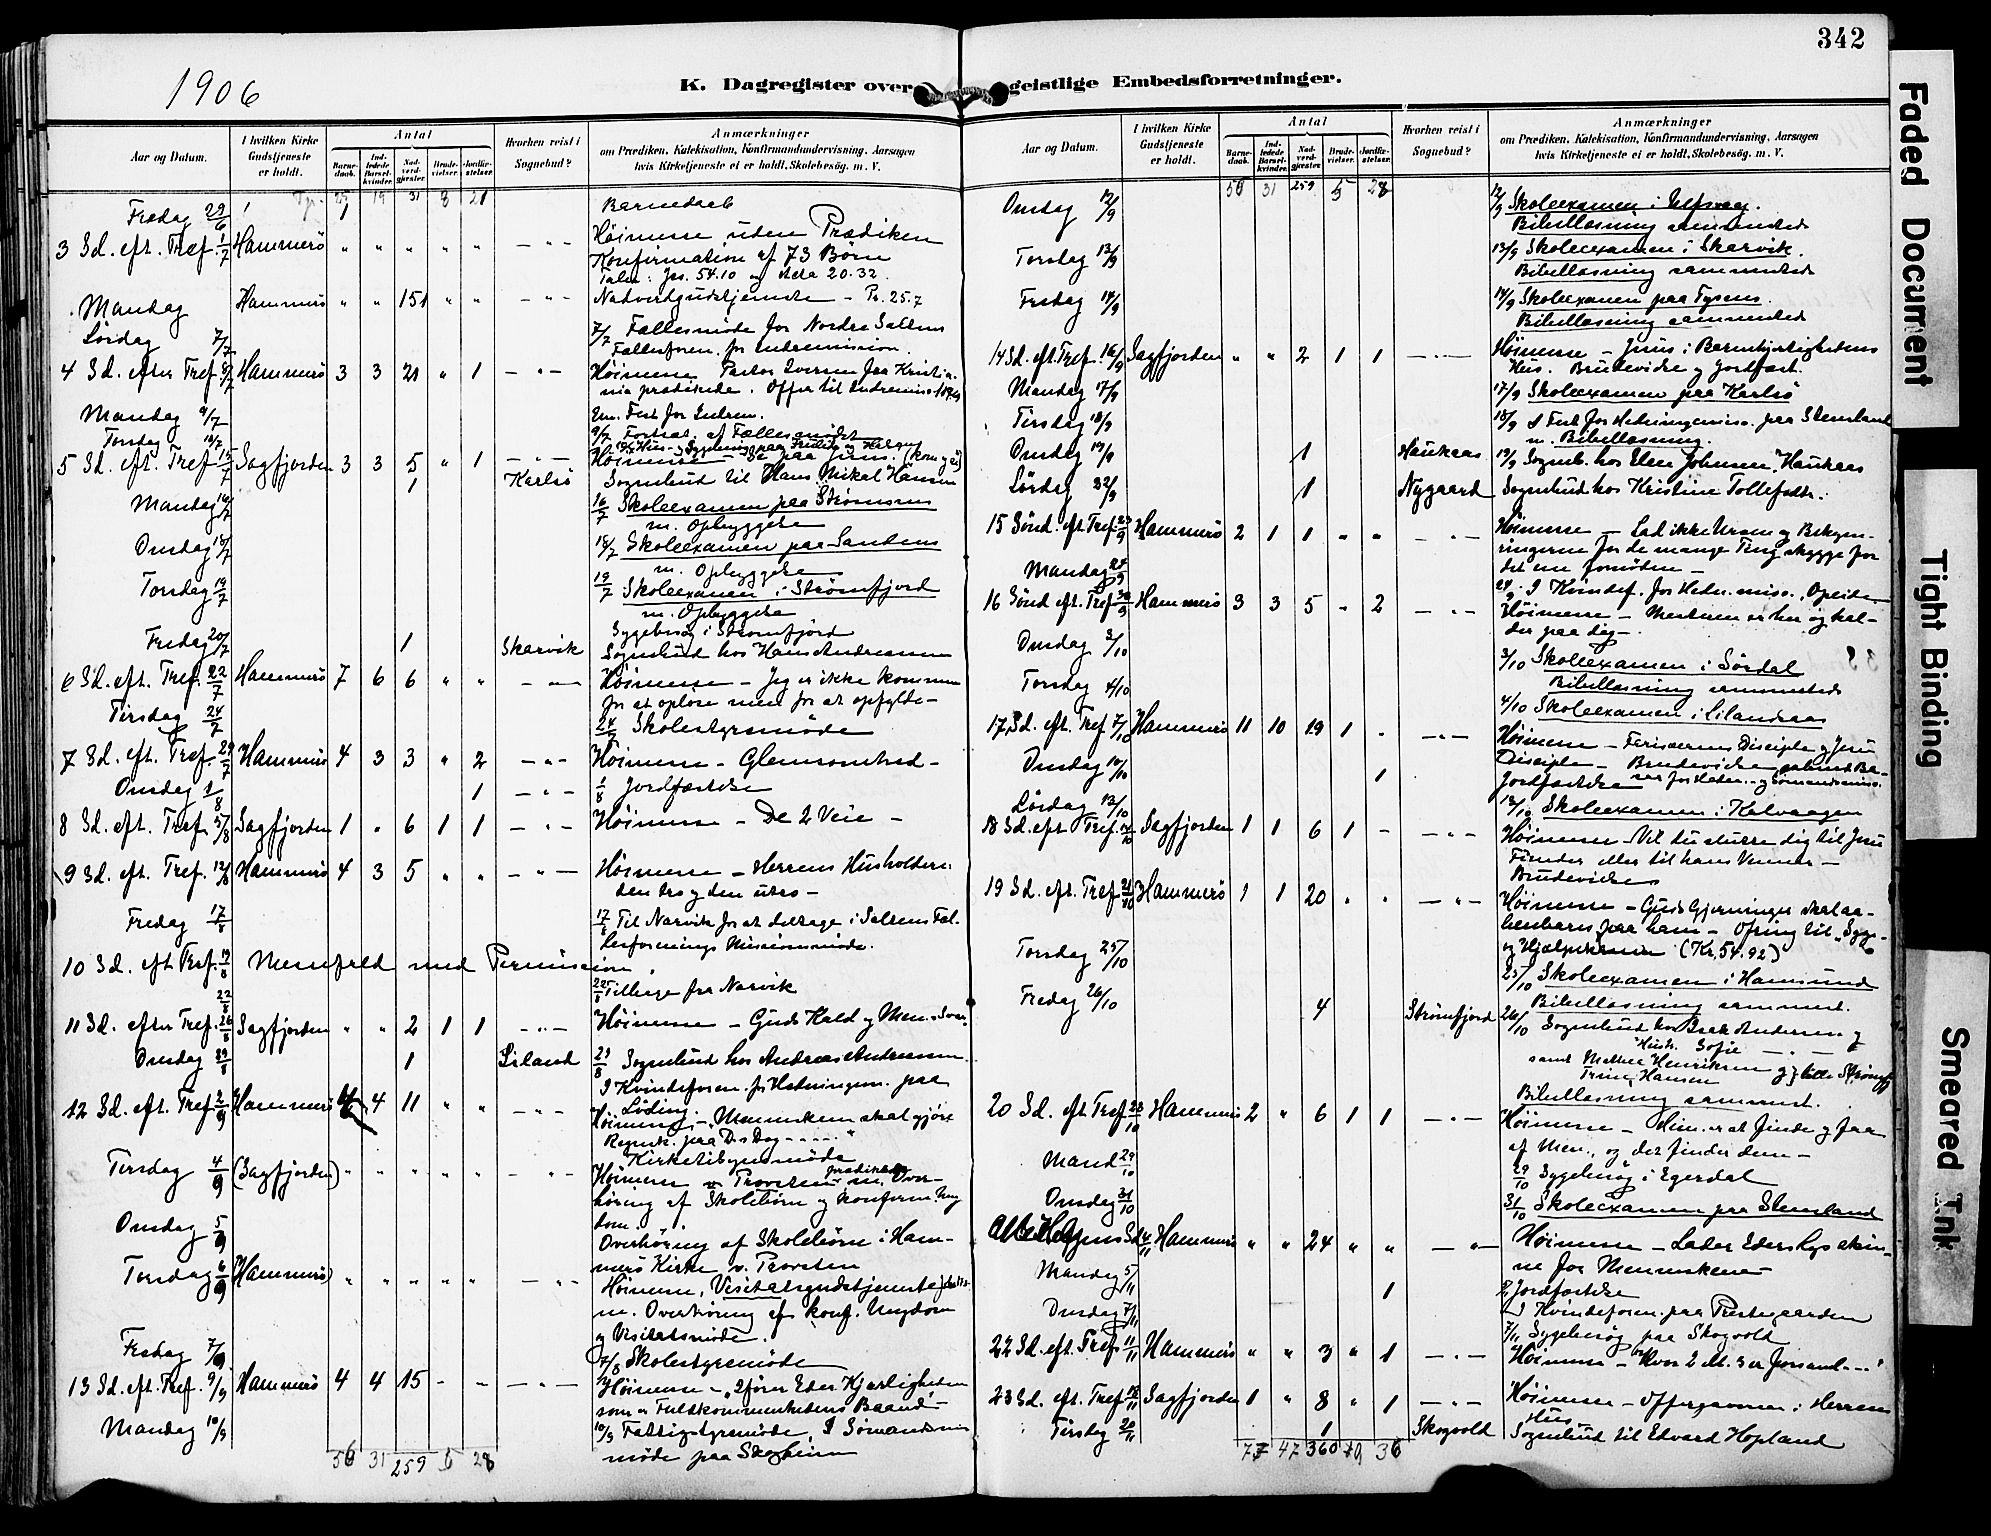 342
1906
K. Dagregister over geistlige Embedsforretninger.
Aar og Datum.
I hvilken Kirke Gudstjeneste er holdt.
Antal
Barnedaab.
Indledede Barselkvinder.
Nadverdgjæster.
Brudevielser.
Jordfæstelser.
Hvorhen reist i Sognebud?
Anmærkninger
om Prædiken, Katekisation, Konfirmandundervisning, Aarsagen
hvis Kirketjeneste ei er holdt, Skolebesøg, m. V.
Fredag 29/6 1 Barnedaab
3 Sd. eft. Tref. 1/7 Hammerø " " " " " - " - Høimesse uden Prædiken
Konfirmation af 73 Børn
Taler: Jes. 54.10 og Acta 20.32.
Mandag Hammerø " " 151 " " - " - Nadverdgudstjeneste - Ps. 25.7
Lørdag 7/7 7/7 Fællesmøde for Nordre Saltens
Fællesforen. for Indremission.
4 Sd. efter Tref 8/7 Hammerø 3 3 21 " 1 - " - Høimesse Pastor Iversen fra Kristia-
nia prædikede. Offer til Indremis.
Em. Fest for Indrem.
Mandag 9/7 9/7 Fortsat. af Fællesmødet
Torsdag 12/7
5 Sd. eft. Tref 15/7 Sagfjorden 3 3 5 " 1 - " - Høimesse - Se paa Jesus. (kom og se)
1 Karlsø Sognebud til Hans Mikal Hansen
Mandag 16/7 16/7 Skoleexamen paa Strømsnes
m. Opbyggelse
Onsdag 18/7 18/7 Skoleexamen paa Sandnes
m. Opbyggelse
Torsdag 19/7 19/7 Skoleexamen i Strømfjord
m. Opbyggelse
Sygebesøg i Strømfjord
Fredag 20/7 1 Skarvik Sognebud hos Hans Andreassen
6 Sd. eft. Tref. 22/7 Hammerø 7 6 6 " " - " - Høimesse - Jeg er ikke kommen
for at opløse men for at opfylde -
Tirsdag 24/7 24/7 Skolestyremøde
7 Sd. eft. Tref 29/7 Hammerø 4 3 3 " 2 - " - Høimesse - Glemsomhed -
Onsdag 1/8 1 - " - 1/8 Jordfæstelse
8 Sd. eft. Tref. 5/8 Sagfjorden 1 " 6 1 1 - " - Høimesse - De 2 Veie -
9 Sd. eft. Tref. 12/8 Hammerø 4 3 5 " " - " - Høimesse - Herrens Husholdere:
den tro og den utro -
Fredag 17/8 17/8 Til Narvik for at deltage i Saltens Fæl-
lesforenings Missionsmøde.
10 Sd. eft Tref. 19/8 Messefald med Permission.
22/8 22/8 Tilbage fra Narvik
11 Sd. efter Tref. 26/8 Sagfjorden " " 2 1 1 - " - Høimesse - Guds Kald og Men. Svar
Onsdag 29/8 1 Liland 29/8 Sognebud hos Andreas Andreassen
I Kvindeforen. for Hedningem. paa
Løding.
12 Sd. eft. Tref 2/9 Hammerø 4 4 11 " " - " - Høimesse - Mennesken skal gjøre
Regnsk. paa D. Dag - - - -
Kirketilsynsmøde
Tirsdag 4/9 (Sagfjorden) " " " " " - " - Høimesse v. Provsten prædikede m. Over-
høring af Skolebørn og konfirm. Ung
dom.
Onsdag 5/9 Overhøring af Skolebørn i Ham-
merø Kirke v. Provsten
Torsdag 6/9 (Hammerø) " " " " " - " - Høimesse, Visitatsgudstjeneste
m. Overhøring af konf. Ungdom
og Visitatsmøde.
Fredag 7/9 7/9 Skolestyremøde
13 Sd. eft. Tref. 9/9 Hammerø 4 4 15 - - - " - Høimesse - Ifører Eder Kjærligheden
som er Fuldkommenhedens Baand -
Mandag 10/9 10/9 Fattigstyremøde, I Sømands m
møde paa Skogheim
56 31 259 5 28
56 31 259 5 28
Onsdag 12/9 12/9 Skoleexamen i Ulfsvaag.
Bibellæsning sammesteds
Torsdag 13/9 13/9 Skoleexamen i Skarvik.
Bibellæsning sammesteds
Fredag 14/9 14/9 Skoleexamen paa Tysnes.
Bibellæsning sammesteds
14 Sd. eft. Tref 16/9 Sagfjorden " " 2 1 1 - " - Høimesse - Jesus i Barmhjertighedens
Hus. Brudevielse og Jordfæst.
Mandag 17/9 17/9 Skoleexamen paa Karlsø
Tirsdag 18/9 18/9 I Fest for Hedningemiss. paa Stensland
m. Bibellæsning.
Onsdag 19/9 1 Haukaas 19/9 Sogneb. hos Elen Johnsen, Haukaas
Lørdag 22/9 1 Nygaard Sognebud hos Kristine Tollefsdtr.
15 Sønd. eft. Tref 23/9 Hammerø 2 1 1 " " - " - Høimesse - Lad ikke Uroen og Bekym-
ringerne for de mange Ting skygge for
det ene fornødne -
Mandag 24/9 24/9 I Kvindef. for Hedn.miss., Opeide
16 Sønd eft. Tref 30/9 Hammerø 3 3 5 " 2 - " - Høimesse - Mesteren er her og kal-
der paa dig -
Onsdag 3/10 3/10 Skoleexamen i Sørdal
Bibellæsning sammesteds
Torsdag 4/10 4/10 Skoleexamen i Lilandsaas
17 Sd. eft. Tref 7/10 Hammerø 11 10 19 1 - - " - Høimesse - Farisæernes Disciple og Jesu
Disciple - Brudevielse
Onsdag 10/10 1 Jordfæstelse
Lørdag 13/10 13/10 Skoleexamen i Kalvaagen
18 Sd. eft Tref. 14/10 Sagfjorden 1 1 6 1 - - " - Høimesse - Vil du slutte dig til Jesu
Fiender eller til hans Venner -
Brudevielse
19 Sd. eft. Tref 21/10 Hammerø 1 1 20 " " - " - Høimesse - Guds Gjerninger skal aa-
benbares paa ham - Ofring til "Syge-
og Hjælpekassen (Kr. 54.92)
Torsdag 25/10 25/10 Skoleexamen i Hamsund
Bibellæsning sammest.
Fredag 26/10 4 Strømfjord 26/10 Sognebud hos Isak Andersen og
Hustr. Sofie - " -
samt Mathea Henriksen og
Trine Hansen
Bibellæsning sammest.
20 Sd. eft Tref 28/10 Hammerø 2 " 6 1 1 - " - Høimesse - Him. er at finde og faa
af Men., og det finder dem -
Mand 29/10 29/10 Sygebesøg i Egerdal
Onsdag 31/10 31/10 Skoleexamen paa Stensland
Alle Helgens Sd 4/11 Hammerø " " 24 " " - " - Høimesse - Lader Eders Lys skin-
ne for Menneskene -
Mandag 5/11 1 Jordfæstelse
I Kvindeforen. paa Prestegaarden
Onsdag 7/11 7/11 Sygebesøg paa Skogvold
22 Sd. eft. Tref 11/11 Hammerø " " 3 " 1 - " - Høimesse - Hvor 2 el. 3 er forsaml. - -
23 Sd. eft. Tref 18/11 Sagfjorden 1 " 8 " 1 - " - Høimesse - Offergaven i Herrens
Hus -
Tirsdag 20/11 1 Skogvold Sognebud til Edvard Hopland
77 47 360 10 36
Faded Document
Tight Binding
Smeared Ink